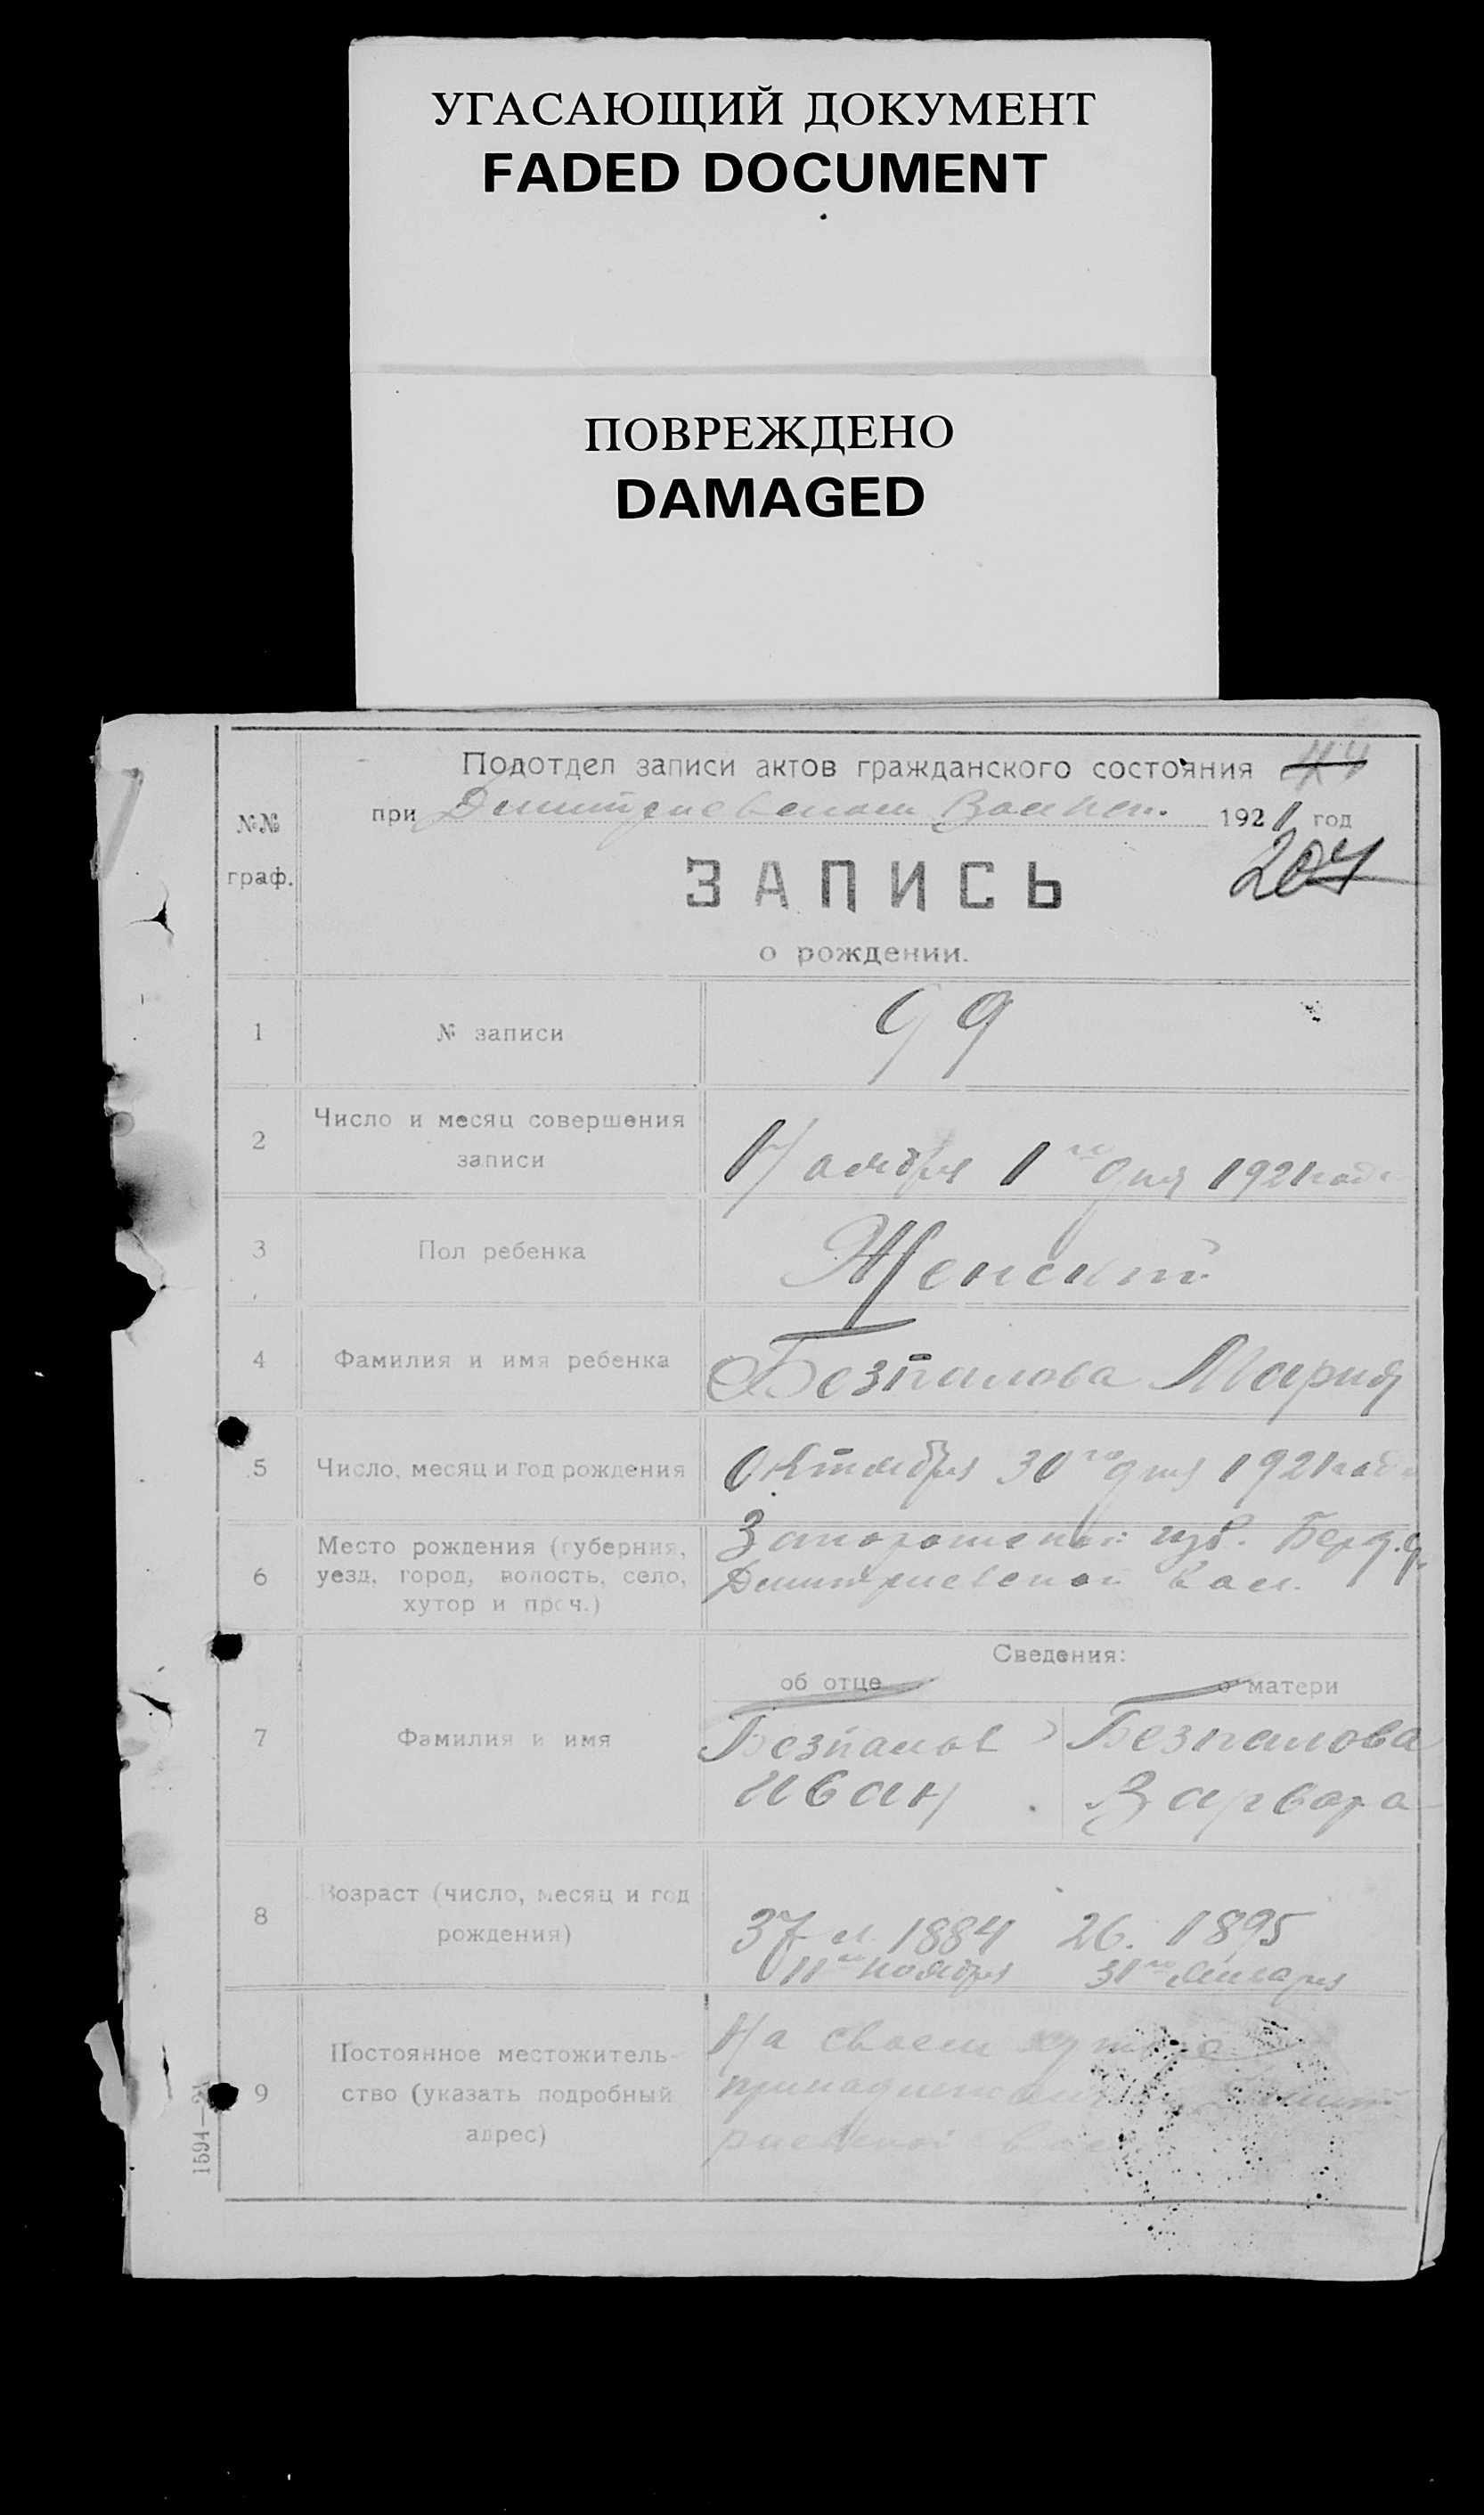 УГАСАЮЩИЙ ДОКУМЕНТ
FADED DOCUMENT
ПОВРЕЖДЕНО
DAMAGED
Подотдел записи актов гражданского состояния 44
при Дмитриевском Волисп. 1921 год
№№ граф.
204
ЗАПИСЬ
о рождении.
1 № записи 99
2 Число и месяц совершения записи Ноября 1го дня 1921 года
3 Пол ребенка Женский
4 Фамилия и имя ребенка Безпалова Мария
5 Число, месяц и год рождения Октября 30го дня 1921 года
6 Место рождения (губерния, уезд, город, волость, село, хутор и проч.) Запорожской губ. Берд. у.
Дмитриевской вол.
Сведения:
об отце о матери
7 Фамилия и имя Безпалов Иван Безпалова Варвара
8 Возраст (число, месяц и год рождения) 37 л. 1884 11го Ноября 26. 1895 31го Января
9 Постоянное местожительство (указать подробный адрес) На своем хуторе
1594—21